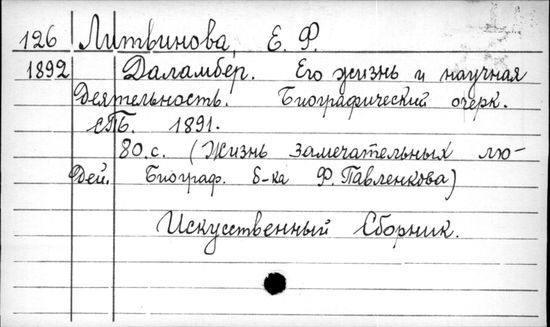 126 Литвинова, Е. Ф.
1892 Даламбер. Его жизнь и научная
деятельность. Биографический очерк.
СПБ. 1891.
80.с. (Жизнь замечательных лю-
дей. Биограф. б-ка Ф. Павленкова)
Искусственный Сборник.